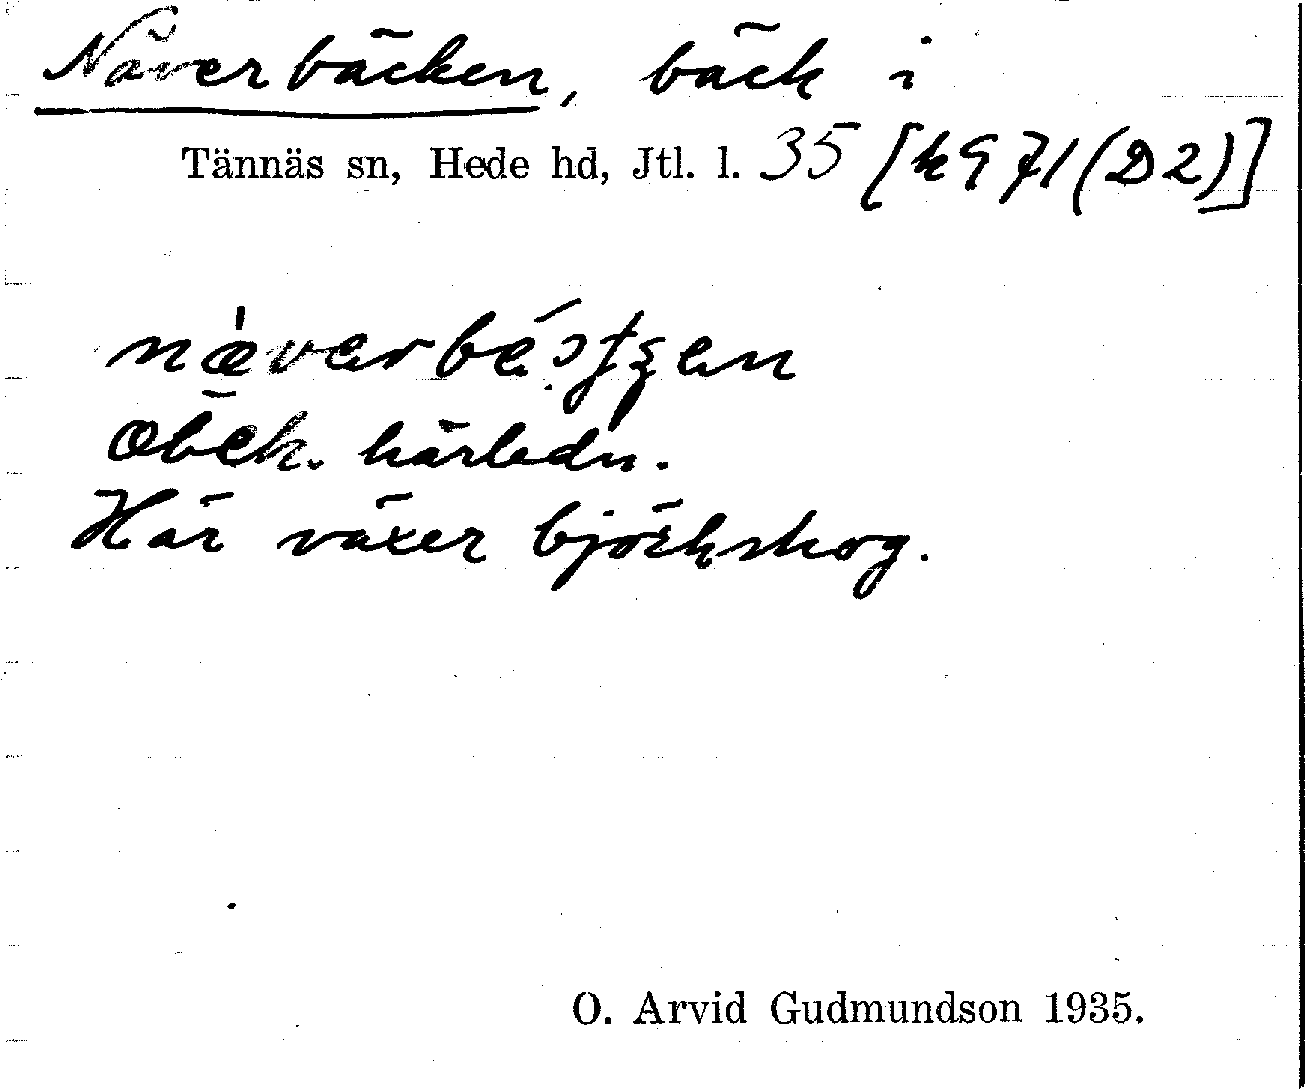 Näverbäcken, bäck i
Tännäs sn, Hede hd, Jtl. l. 35 [k971(D2)]
Obek. härledn.
Här växer björkskog.
O. Arvid Gudmundson 1935.